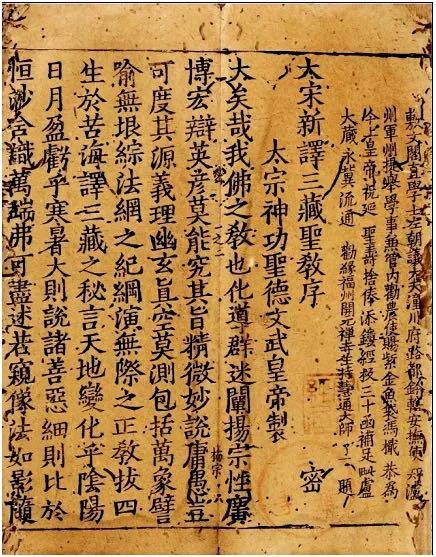 敷文閣直學士左朝議大夫潼川府路都鈐轄安撫使知瀘
州軍州提舉學事兼管内勸農使賜紫金魚袋馮檝 恭爲
今上皇帝祝延 聖壽捨俸添鏤經板三十函補足毗盧
大藏永冀流通 勸緣福州開元禪寺住持慧通大師 了一 題
大宋新譯三藏聖教序 密
太宗神功聖德文武皇帝製
大矣哉我佛之教也化導群迷闡揚宗性廣
博宏辯英彥莫能究其旨精微妙說庸愚豈
可度其源義理幽玄眞空莫測包括萬象譬
喻無垠綜法網之紀綱演無際之正教拔四
生於苦海譯三藏之秘言天地變化乎隂陽
日月盈虧乎寒暑大則說諸善惡細則比於
恒沙含識萬端弗可盡述若窺像法如影隨